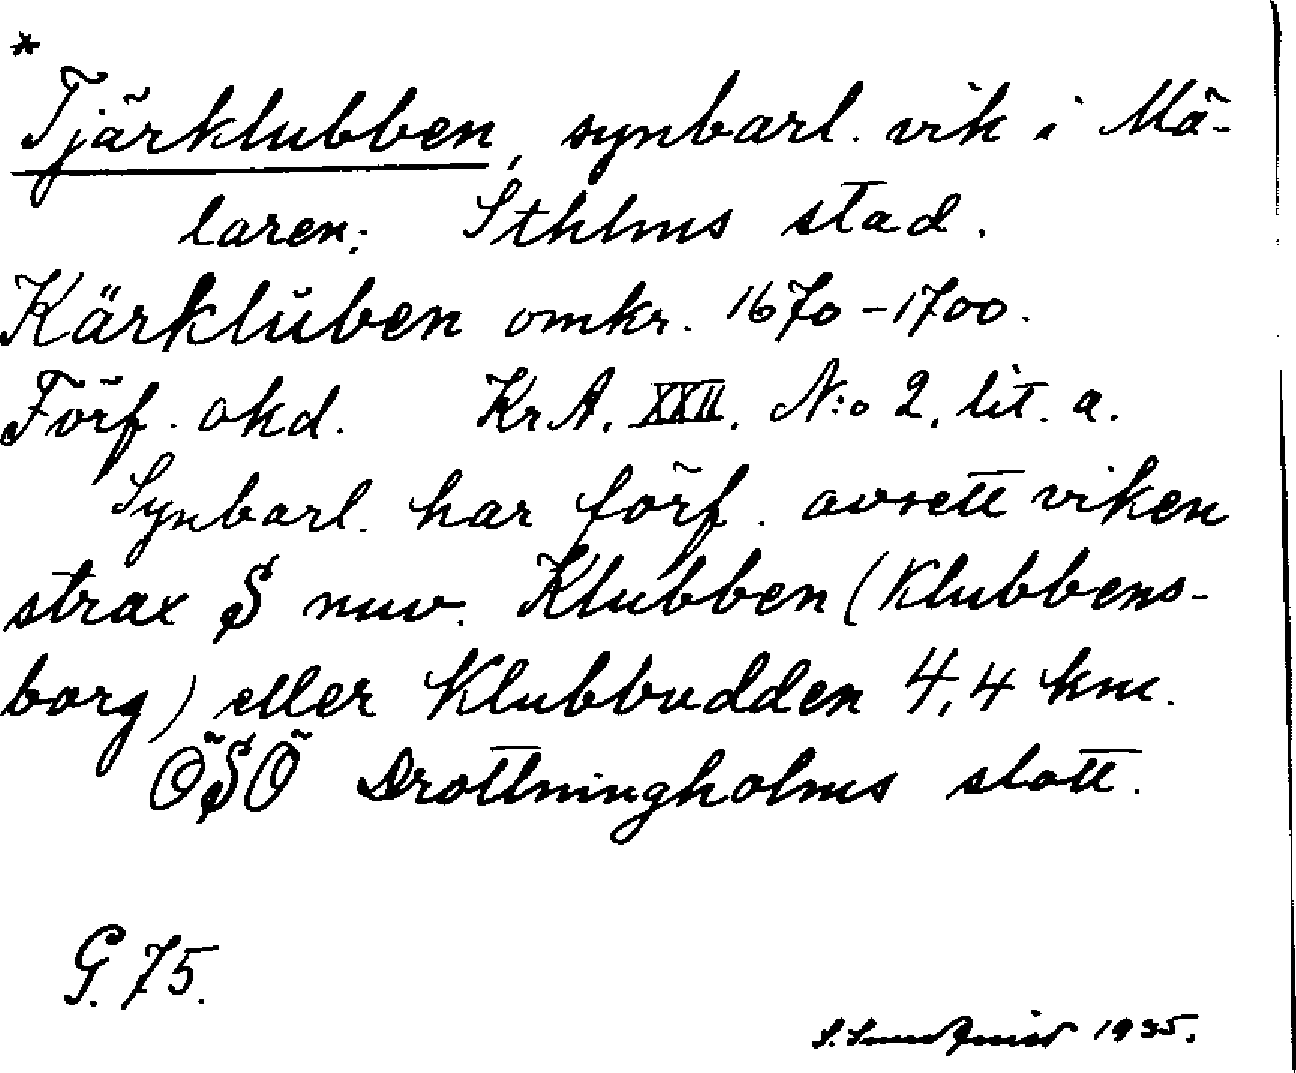 *
Tjärklubben, synbarl. vik i Mä-
laren; Sthlms stad.
Kärklŭben omkr. 1670-1700.
Förf. okd. KrA. XXII. N:o 2. lit. a.
Synbarl. har förf. avsett viken
strax S nuv. Klubben (Klubbens-
borg) eller Klubbudden 4,4 km.
ÖSÖ Drottningholms slott.
G. 75.
S. 1935.